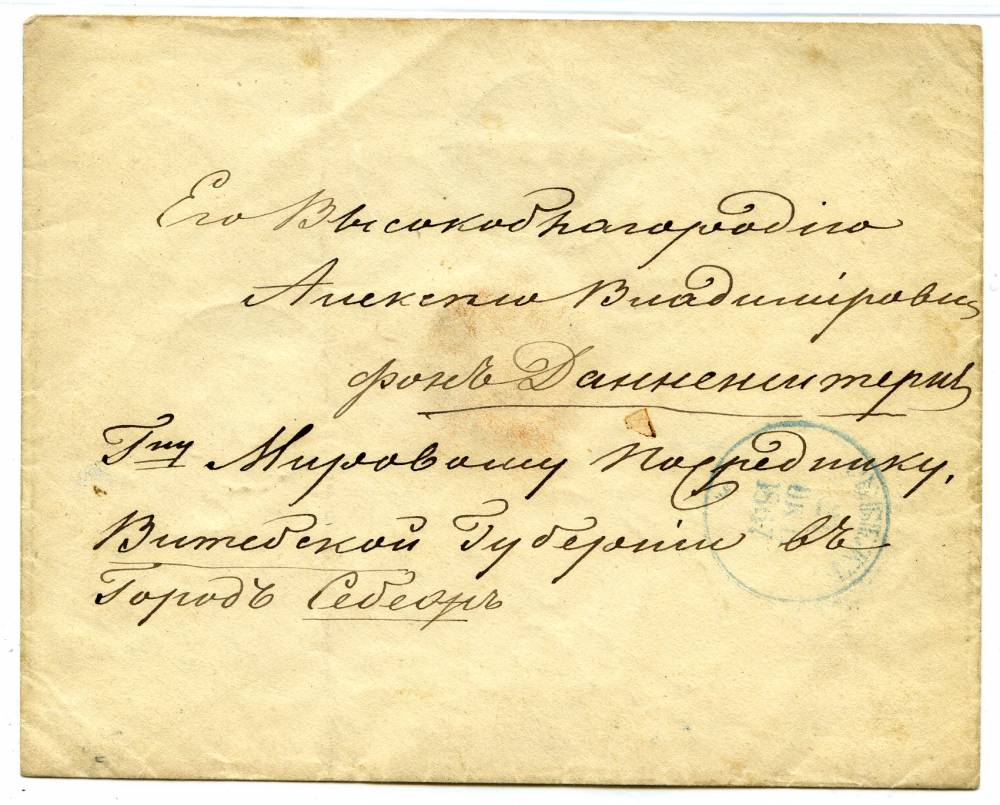 Его Высокоблагородiю
Алексѣю Владимiрови
фонъ Данненштернъ
Гну Мировому Посреднику,
Витебской Губернiи въ
Городъ Себежъ
СЕБЕЖ
ОК